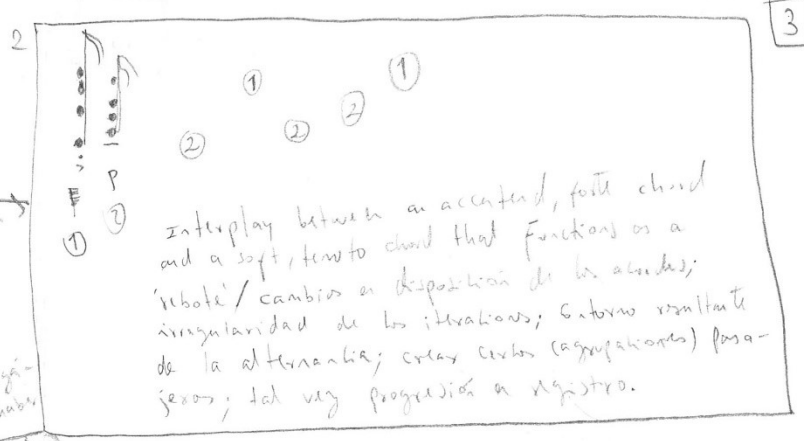 2
3
1
1
2
2
2
F
P
1
2
Interplay between an accented, forte chord
and a soft, tenuto chord that functions as a
'rebote' / cambios en disposición de los acordes;
irregularidad de las iterations; entorno resultante
de la alternantia; crear cierlos (agrupationes) pasa-
jeros; tal vez progresión en registro.